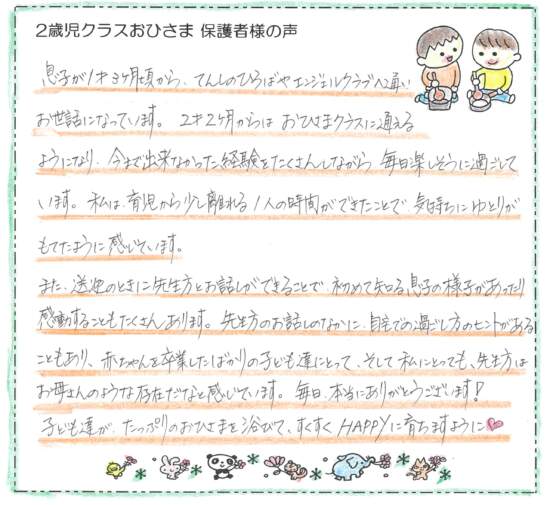 2歳児クラスおひさま 保護者様の声
息子が1才3ヶ月頃から、てんしのひろばやエンジェルクラブへ通い
お世話になっています。 2才2ヶ月からは おひさまクラスに通える
ようになり、今まで出来なかった経験をたくさんしながら 毎日楽しそうに過ごして
います。私は、育児から少し離れる1人の時間ができたことで、気持ちにゆとりが
もてたように感じています。
また、送迎のときに先生方とお話しができることで、初めて知る息子の様子があったり
感動することもたくさんあります。先生方のお話しのなかに、自宅での過ごし方のヒントがある
こともあり、赤ちゃんを卒業したばかりの子ども達にとって、そして私にとっても、先生方は
お母さんのような存在だなと感じています。毎日、本当にありがとうございます!
子ども達が、たっぷりのおひさまを浴びて、すくすくHAPPYに育ちますように♥